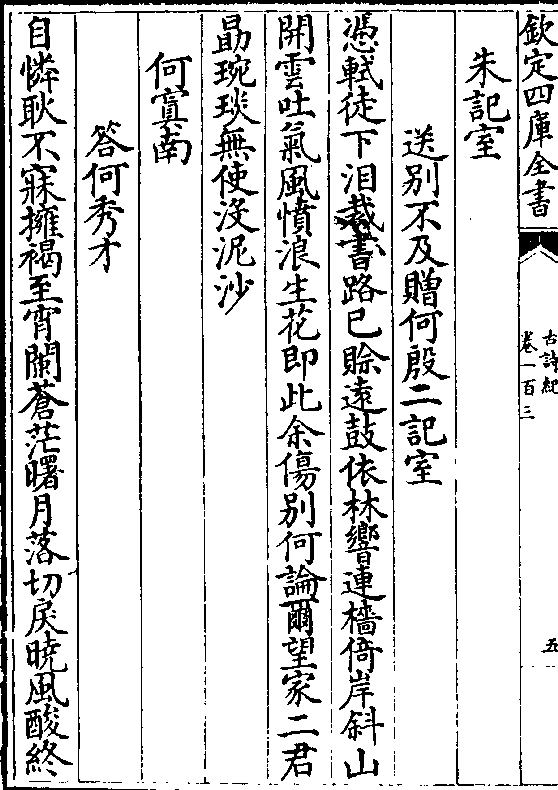 欽定四庫全書
古詩紀
卷一百三
五
朱記室
送别不及贈何殷二記室
憑軾徒下泪裁書路已賒遠鼓依林響連檣倚岸斜山
開雲吐氣風憤浪生花即此余傷别何論爾望家二君
勗琬琰無使没泥沙
何寘南
答何秀才
自憐耿不寐擁褐至宵闌蒼茫曙月落切戾曉風酸終